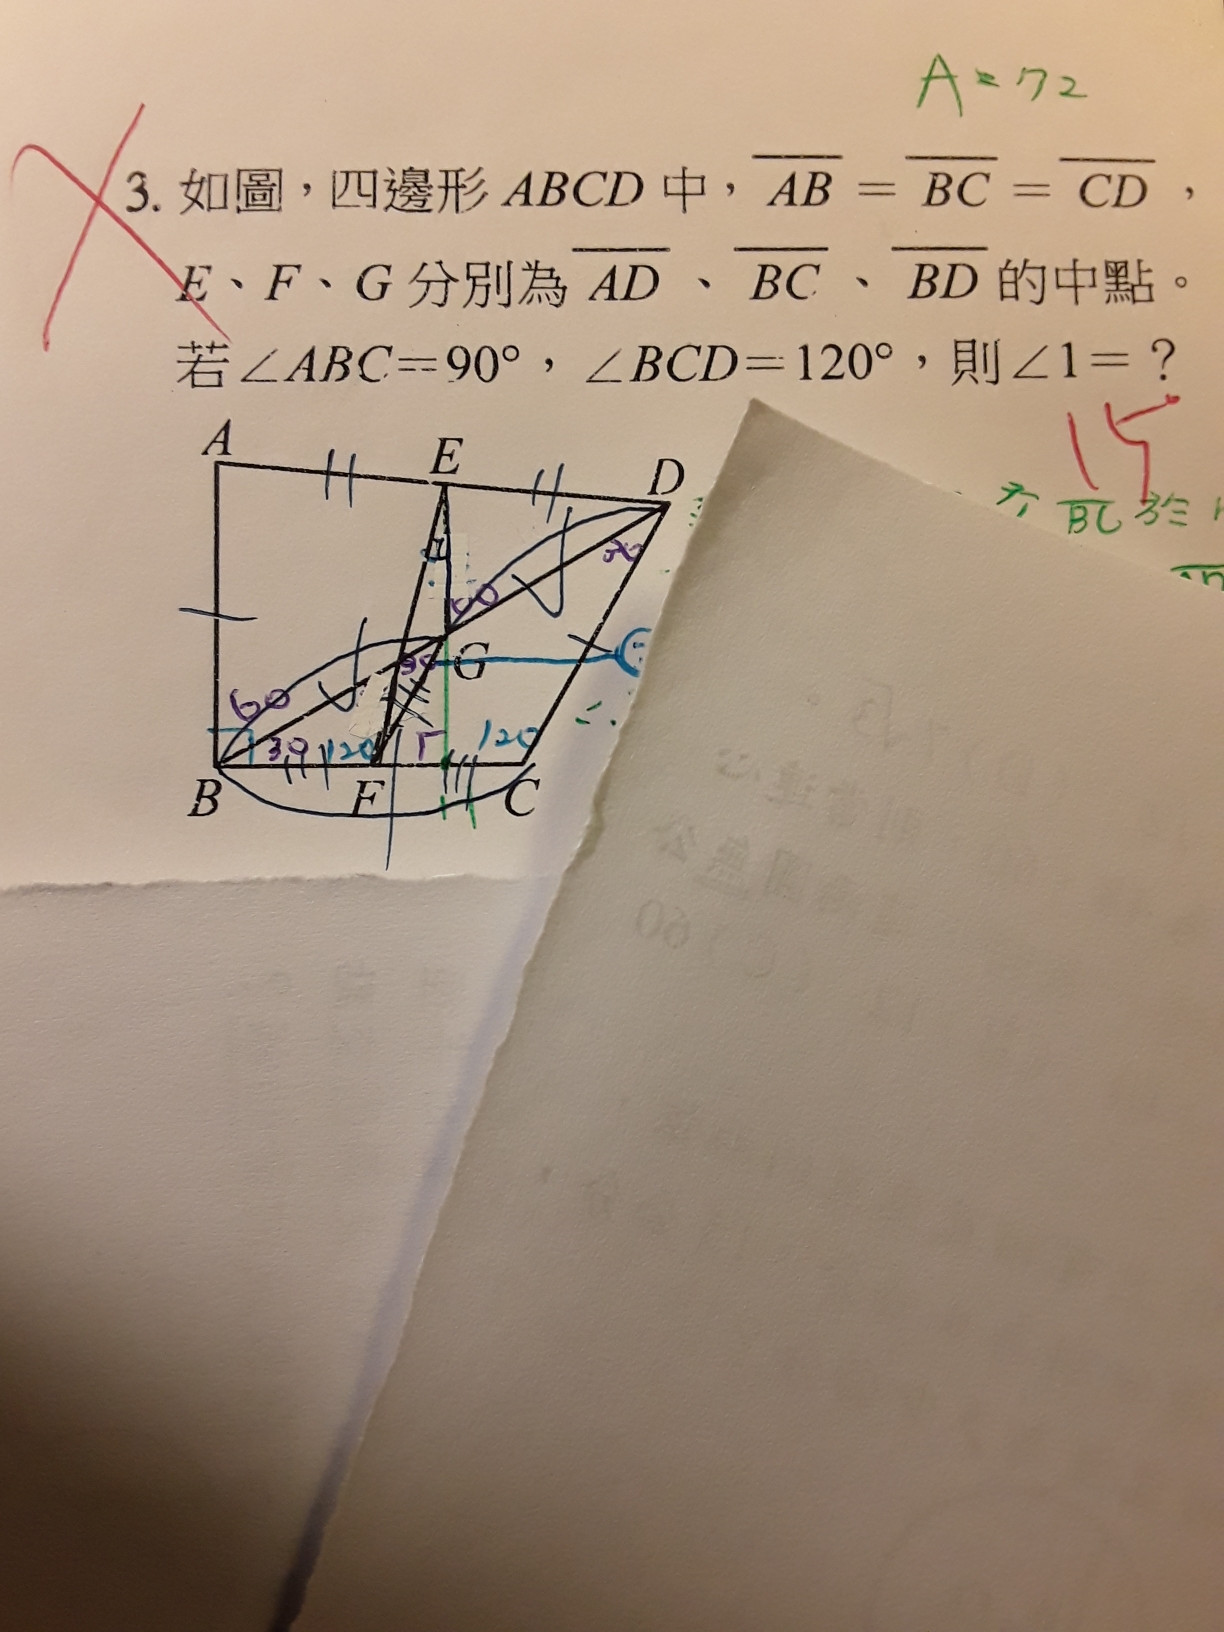 A = 72
3. 如圖，四邊形 ABCD 中，AB = BC = CD，
E、F、G 分別為 AD、BC、BD 的中點。
若∠ABC=90°，∠BCD=120°，則∠1=？
15
BC
A
E
D
1
60
G
60
30
120
120
B
F
C
60